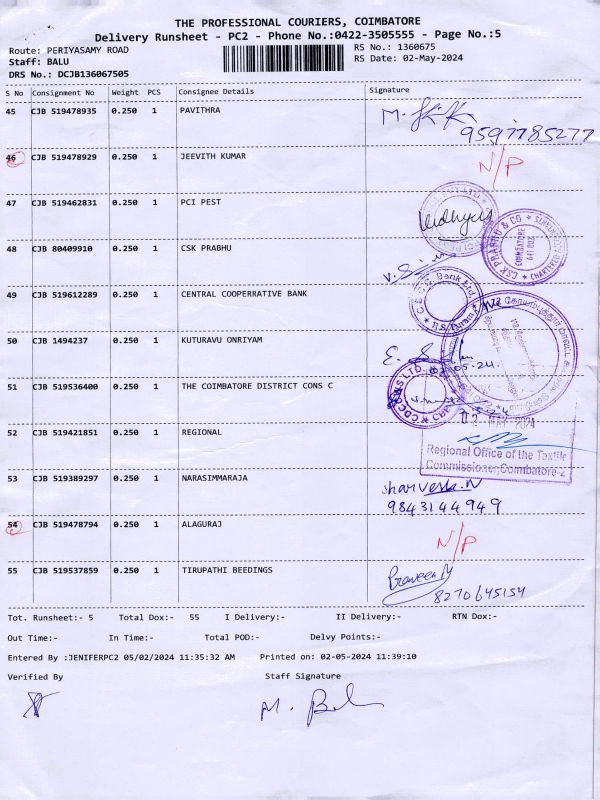 THE PROFESSIONAL COURIERS, COIMBATORE
Delivery Runsheet - PC2 - Phone No.:0422-3505555 - Page No.:5
Route: PERIYASAMY ROAD
RS No.: 1360675
Staff: BALU
RS Date: 02-May-2024
DRS No.: DCJB136067505
S No Consignment No Weight PCS Consignee Details Signature
45 CJB 519478935 0.250 1 PAVITHRA
9597785277
46 CJB 519478929 0.250 1 JEEVITH KUMAR N/P
47 CJB 519462831 0.250 1 PCI PEST
CSK PRABHU & CO
COIMBATORE
48 CJB 80409910 0.250 1 CSK PRABHU
49 CJB 519612289 0.250 1 CENTRAL COOPERRATIVE BANK
Bank Ltd.
50 CJB 1494237 0.250 1 KUTURAVU ONRIYAM
02.05.24
51 CJB 519536400 0.250 1 THE COIMBATORE DISTRICT CONS C
2024
52 CJB 519421851 0.250 1 REGIONAL
Regional Office of the Textile
Commissioner, Coimbatore-2
53 CJB 519389297 0.250 1 NARASIMMARAJA
Sharvesh.N
9843144949
54 CJB 519478794 0.250 1 ALAGURAJ N/P
55 CJB 519537859 0.250 1 TIRUPATHI BEEDINGS
Praveen M
8270645154
Tot. Runsheet:- 5 Total Dox:- 55 I Delivery:- II Delivery:- RTN Dox:-
Out Time:- In Time:- Total POD:- Delvy Points:-
Entered By :JENIFERPC2 05/02/2024 11:35:32 AM Printed on: 02-05-2024 11:39:10
Verified By Staff Signature